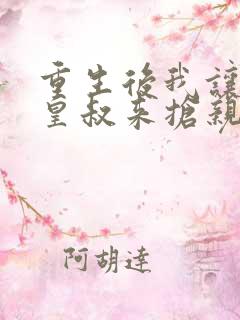 重生後我讓
皇叔來搶親
阿胡達